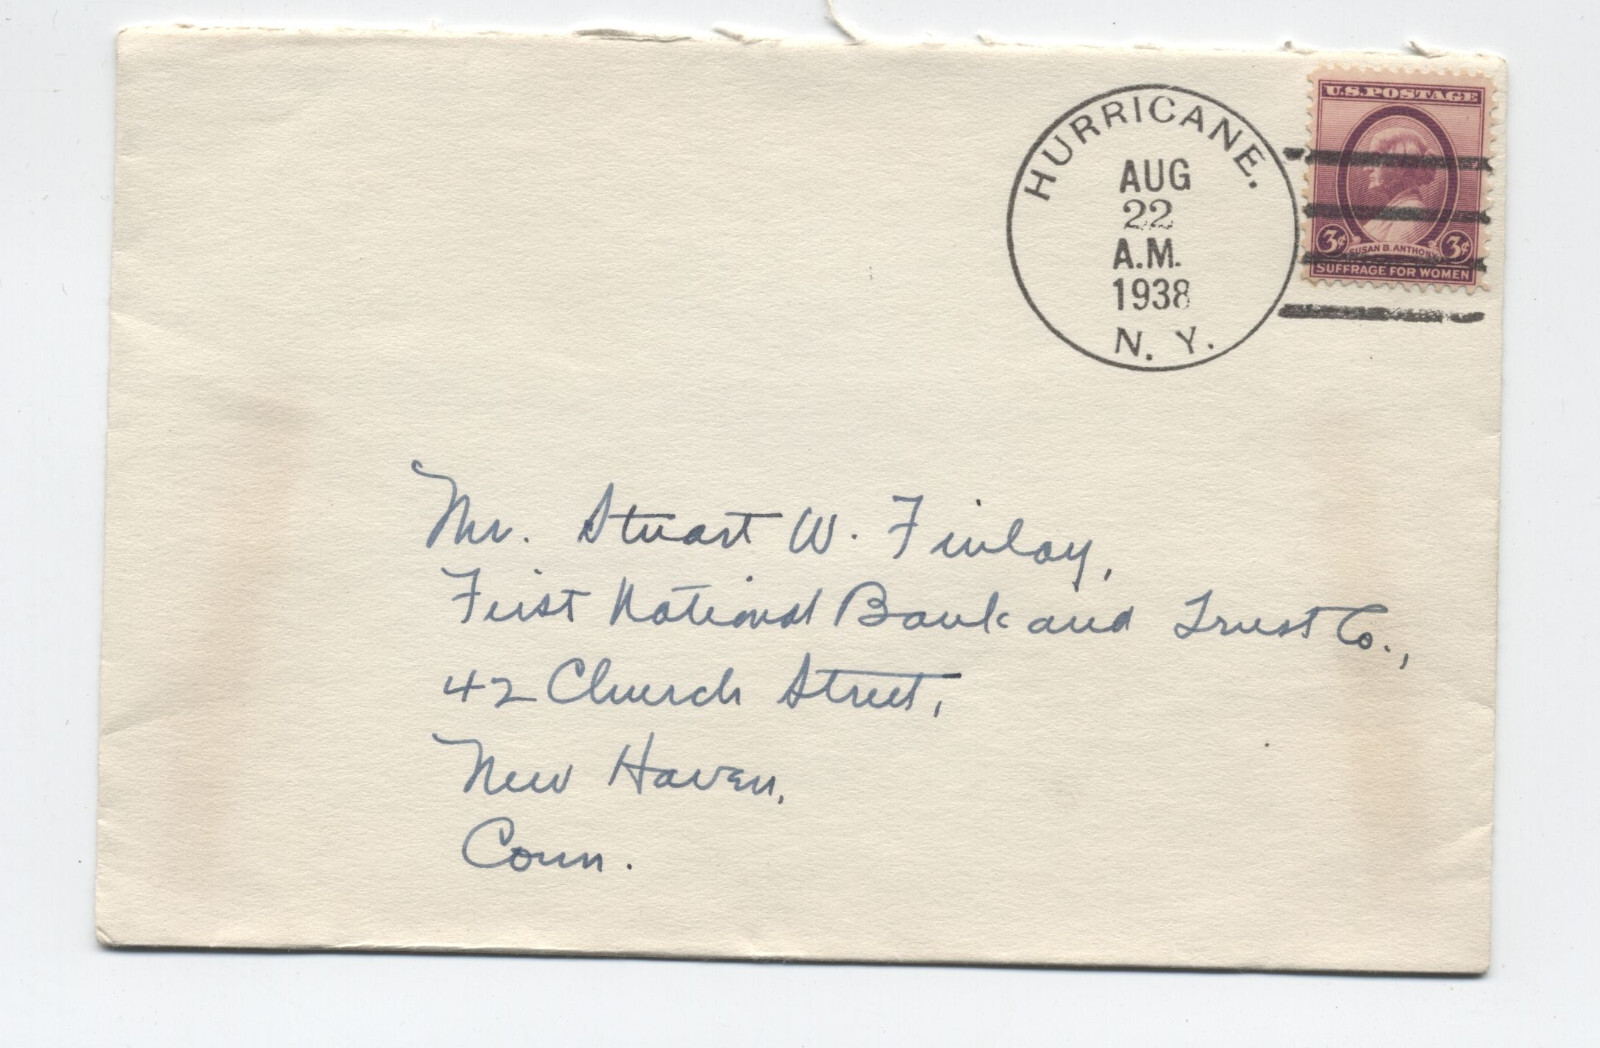 HURRICANE.
AUG
22
A.M.
1938
N. Y.
U.S. POSTAGE
3¢ SUSAN B. ANTHONY 3¢
SUFFRAGE FOR WOMEN
Mr. Stuart W. Finlay,
First National Bank and Trust Co.,
42 Church Street,
New Haven,
Conn.